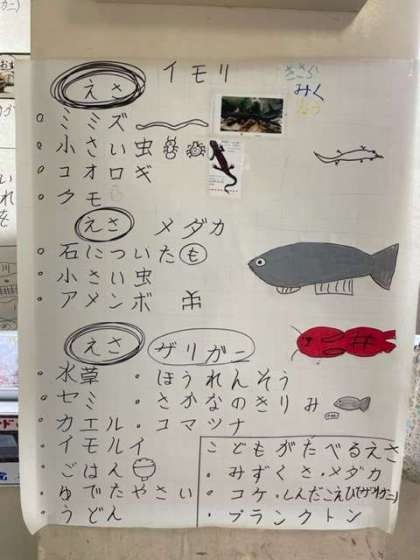 えさ イモリ
きさら
みく
・ミミズ
・小さい虫
・コオロギ
・クモ
えさ メダカ
・石についたも
・小さい虫
・アメンボ
えさ ザリガニ
・水草 ・ほうれんそう
・セミ ・さかなのきりみ
・カエル ・コマツナ
・イモルイ
・ごはん
・ゆでたやさい
・うどん
こどもがたべるえさ
・みずくさ・メダカ
・コケ・しんだこえび(ザリガニ)
・プランクトン